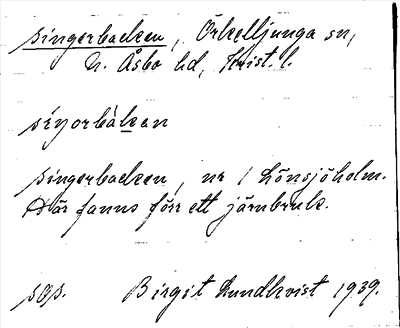 Singerbacken, Örkelljunga sn,
N. Åsbo hd, Krist. l.
síŋorbàkan
Singerbacken, nr 1 Lönsjöholm.
Där fanns förr ett järnbruk.
sgs. Birgit Lundkvist 1939.